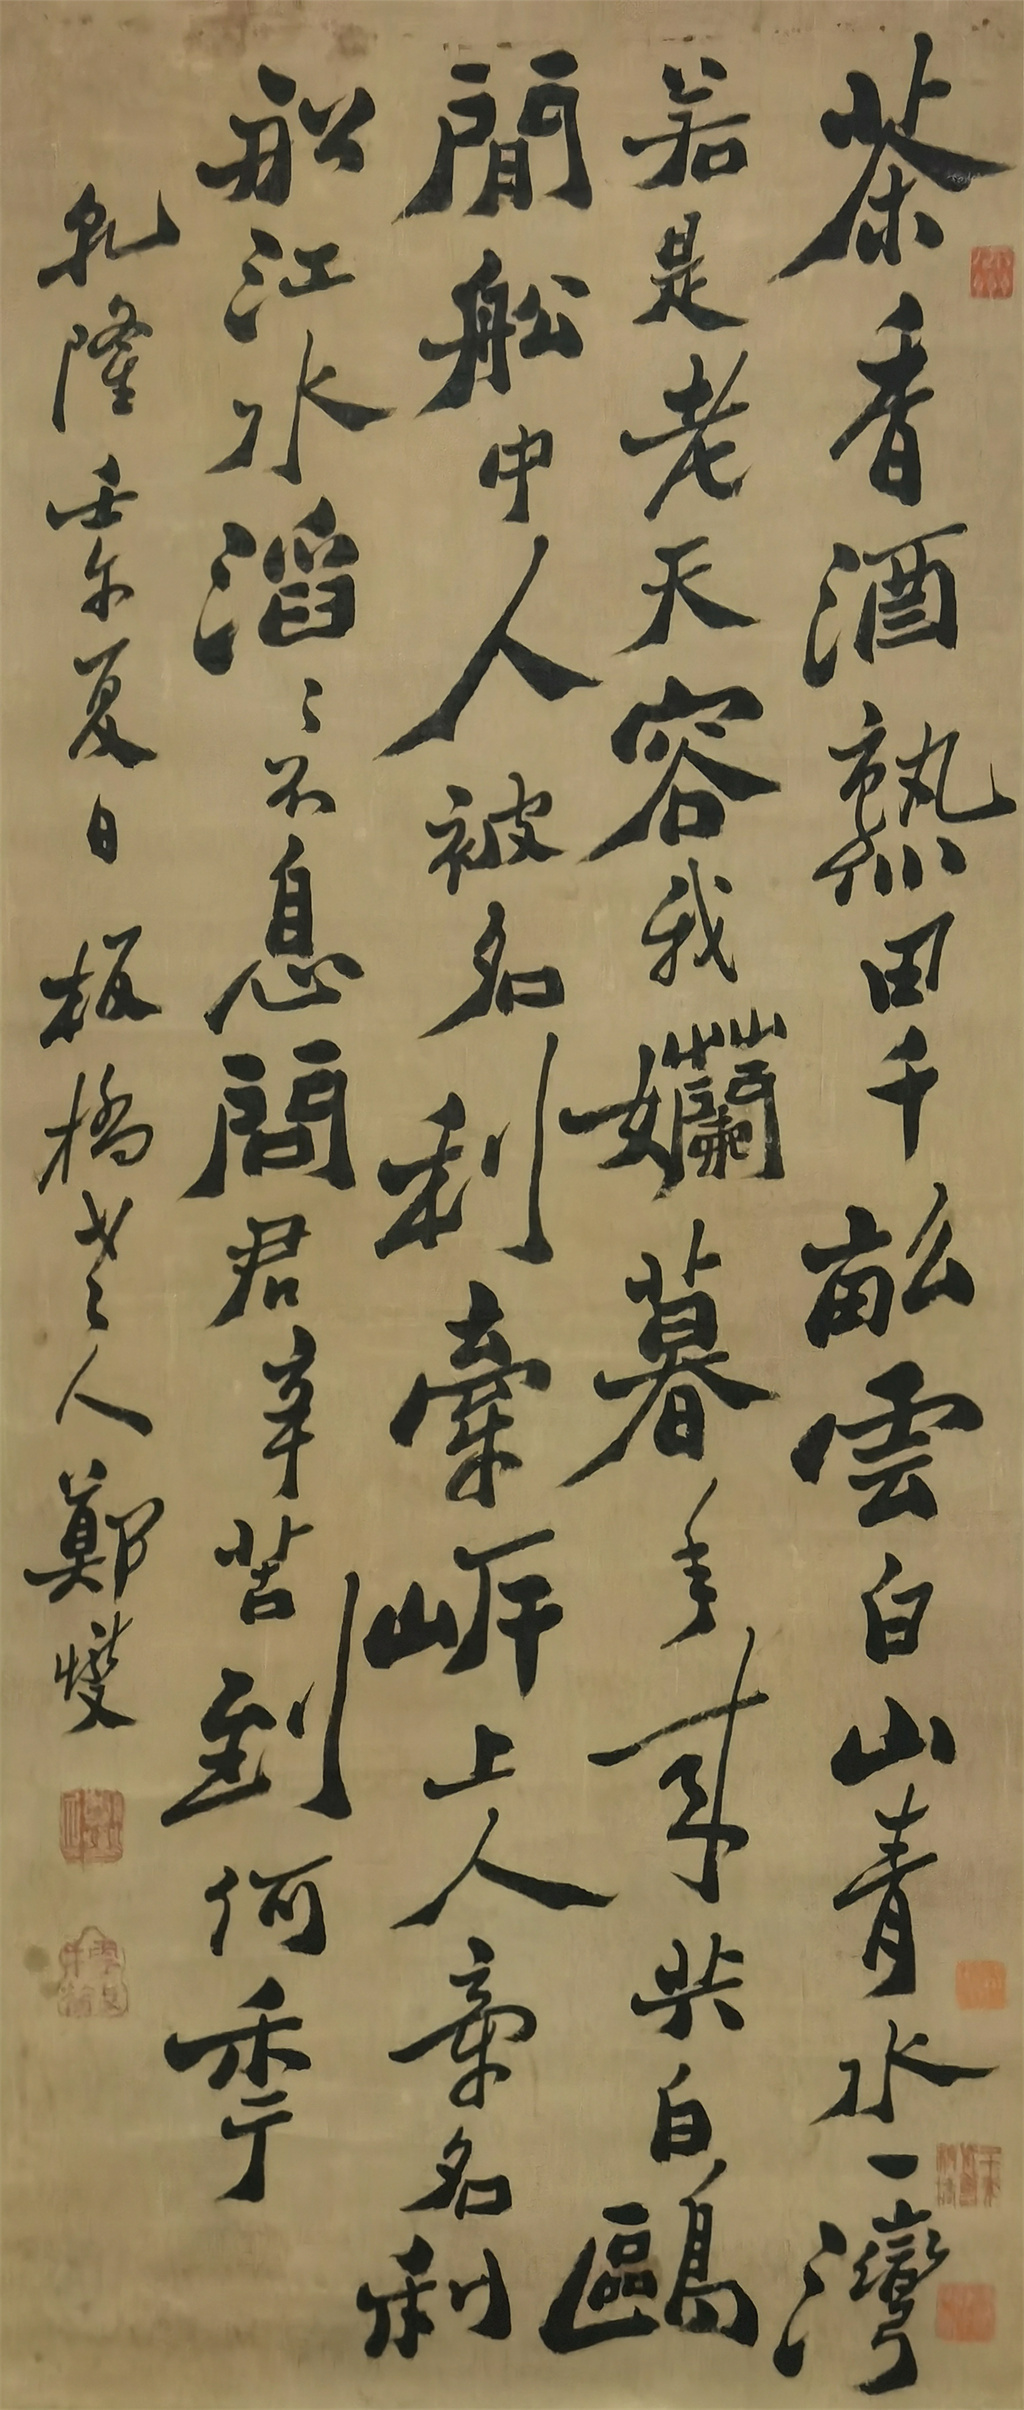 茶香酒熟田千畝雲白山青水一灣
若是老天容我嬾暮年來共白鷗
閒舩中人被名利牽岸上人牽名利
舩江水滔〻不息問君辛苦到何秊
乾隆壬午夏日板橋老人鄭燮